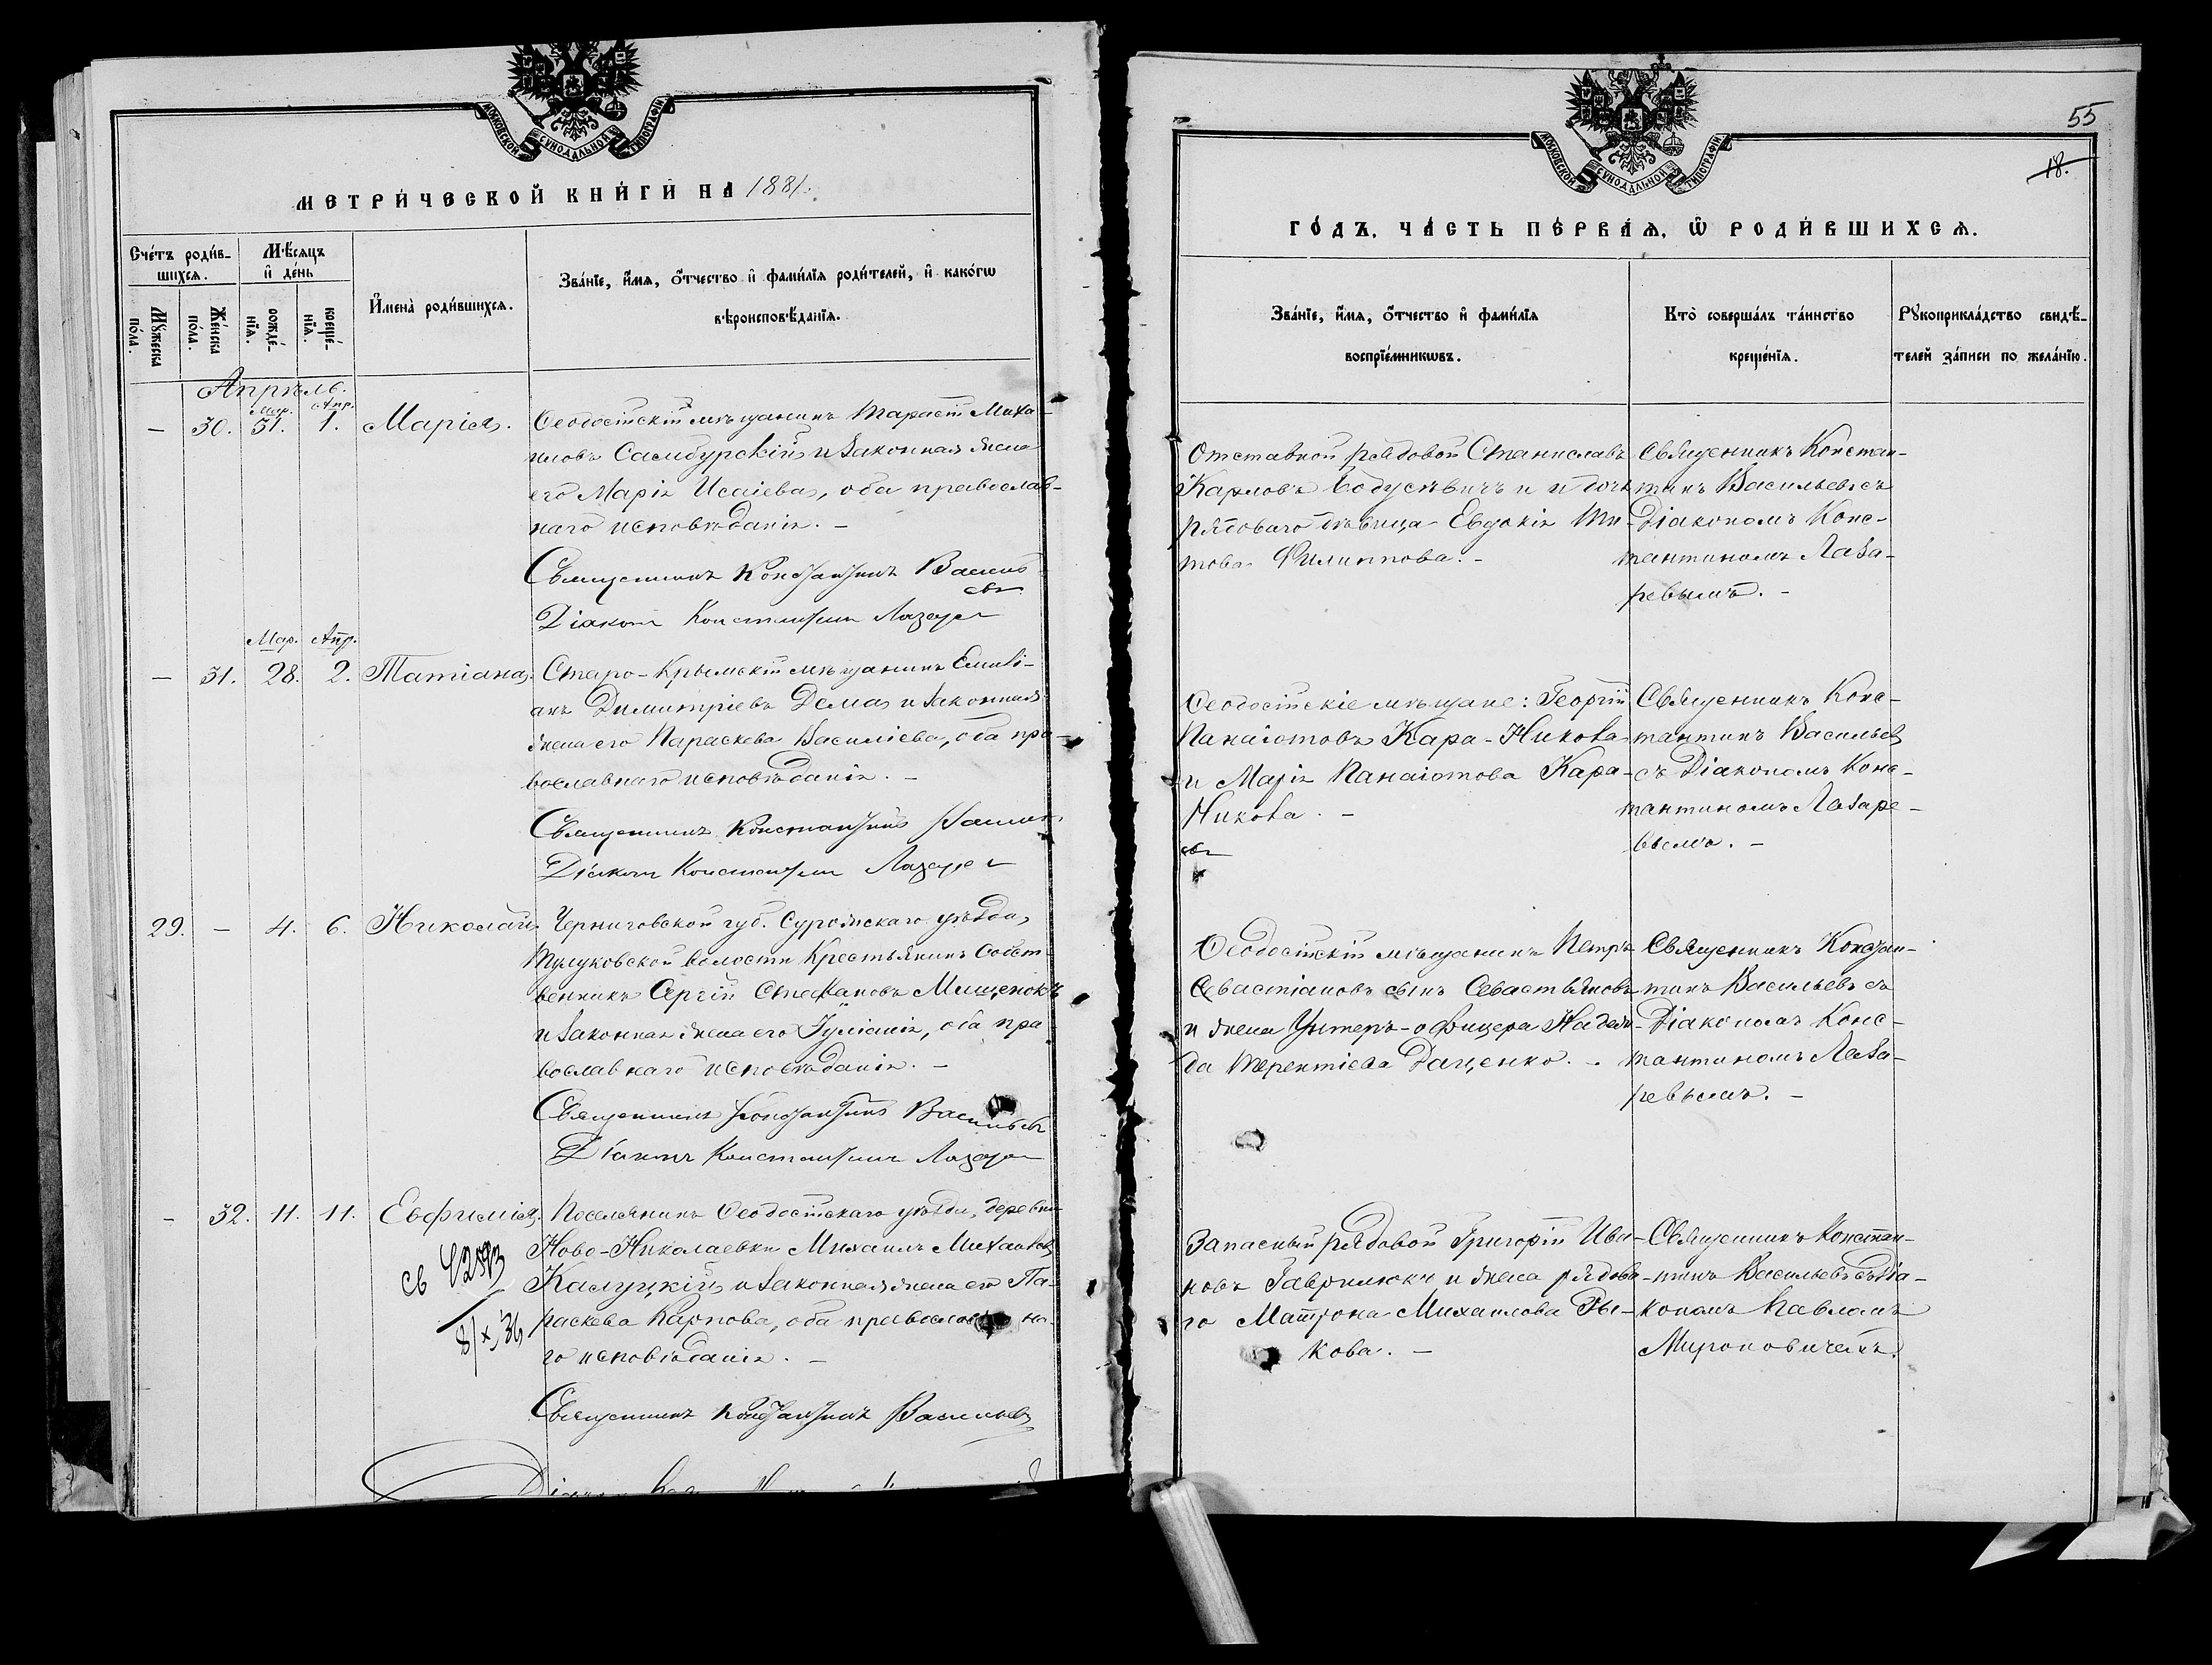 МОСКОВСКОЙ СѴНОДАЛЬНОЙ ТИПОГРАФІИ
МЕТРИ́ЧЕСКОЙ КНИ́ГИ НА 1881.
Сче́тъ роди́в-
шихся.
Мѣ́сяцъ
и҆ де́нь
Мꙋ́жеска
по́ла.
Же́нска
по́ла.
рожде́-
нїѧ.
креще́-
нїѧ.
И҆мена̀ роди́вшихсѧ.
Зва́нїе, и҆́мѧ, ѻ҆́тчество и҆ фами́лїѧ роди́телей, и҆ како́гѡ
вѣроисповѣ́данїѧ.
Апрѣль.
Мар. Апр.
— 30. 31. 1. Марія.
Ѳеодосійскій мѣщанинъ Тарасій Миха-
иловъ Самбурскій и законная жена
его Марія Исаіева, оба православ-
наго исповѣданія. —
Священникъ Константинъ Василь
евъ
Діаконъ Константинъ Лазарев
Мар. Апр.
— 31. 28. 2. Татіана.
Старо-Крымскій мѣщанинъ Емилі-
анъ Димитріевъ Дема и законная
жена его Параскева Василіева, оба пра-
вославнаго исповѣданія. —
Священникъ Константинъ Василь
Діаконъ Константинъ Лазарев
29. — 4. 6. Николай.
Черниговской губ. Суражскаго уѣзда,
волости Крестьянинъ Собст-
венникъ Сергій Стефановъ Мищенокъ
и законная жена его Іуліанія, оба пра-
вославнаго исповѣданія. —
Священникъ Константинъ Васильевъ
Діаконъ Константинъ Лазарев
— 32. 11. 11. Евфимія.
Поселянинъ Ѳеодосійскаго уѣзда, деревни
Ново-Николаевки Михаилъ Михаиловъ
Калуцкій и законная жена его Па-
раскева Карпова, оба православна-
го исповѣданія. —
Священникъ Константинъ Васильевъ
св
8/X 36
55
18.
МОСКОВСКОЙ СѴНОДАЛЬНОЙ ТИПОГРАФІИ
ГО́ДЪ, ЧА́СТЬ ПЕ́РВАЯ, Ѽ РОДИ́ВШИХСѦ.
Зва́нїе, и҆́мѧ, ѻ҆́тчество и҆ фами́лїѧ
воспрїе́мникѡвъ.
Кто̀ соверша́лъ та́инство
креще́нїѧ.
Рꙋкоприкла́дство свидѣ́-
телей за́писи по жела́нїю.
Отставной рядовой Станиславъ
Карловъ и дочь
рядоваго дѣвица Евдокія Ти-
това Филиппова. —
Священникъ Констан-
тинъ Васильевъ съ
Діакономъ Конс-
тантиномъ Лаза-
ревымъ. —
Ѳеодосійскіе мѣщане: Георгій
Панаіотовъ Кара-Никова
и Марія Панаіотова Кара-
Никова. —
евъ
Священникъ Конс-
тантинъ Васильевъ
съ Діакономъ Конс-
тантиномъ Лазаре-
вымъ. —
Ѳеодосійскій мѣщанинъ Петръ
Севастіановъ сынъ Севастьяновъ
и жена Унтеръ-офицера Надеж-
да Терентіева Даценко. —
Священникъ Констан-
тинъ Васильевъ съ
Діакономъ Конс-
тантиномъ Лаза-
ревымъ. —
Запасный рядовой Григорій Ива-
новъ Гаврилюкъ и жена рядова-
го Матрона Михаилова Ры-
кова. —
Священникъ Констан-
тинъ Васильевъ съ Діа-
кономъ Павломъ
Мироновичемъ.